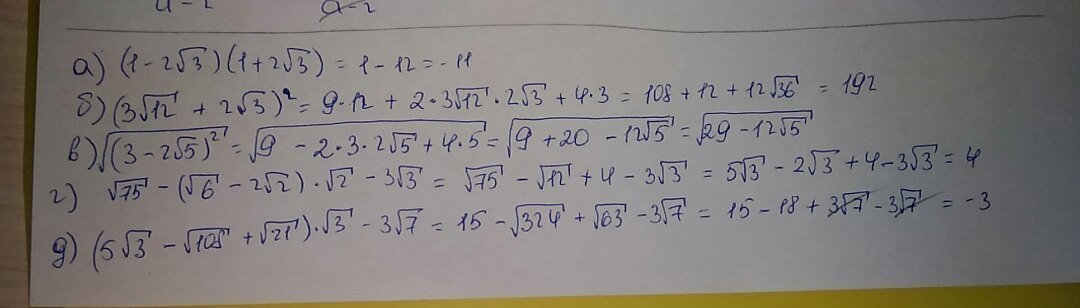 a-2 a-2
а) (1-2√3)(1+2√3) = 1-12 = -11
б) (3√12 + 2√3)² = 9·12 + 2·3√12·2√3 + 4·3 = 108 + 12 + 12√36 = 192
в) √(3-2√5)² = √9 - 2·3·2√5 + 4·5 = √9 + 20 - 12√5 = √29 - 12√5
г) √75 - (√6 - 2√2)·√2 - 3√3 = √75 - √12 + 4 - 3√3 = 5√3 - 2√3 + 4 - 3√3 = 4
д) (5√3 - √108 + √21)·√3 - 3√7 = 15 - √324 + √63 - 3√7 = 15 - 18 + 3√7 - 3√7 = -3